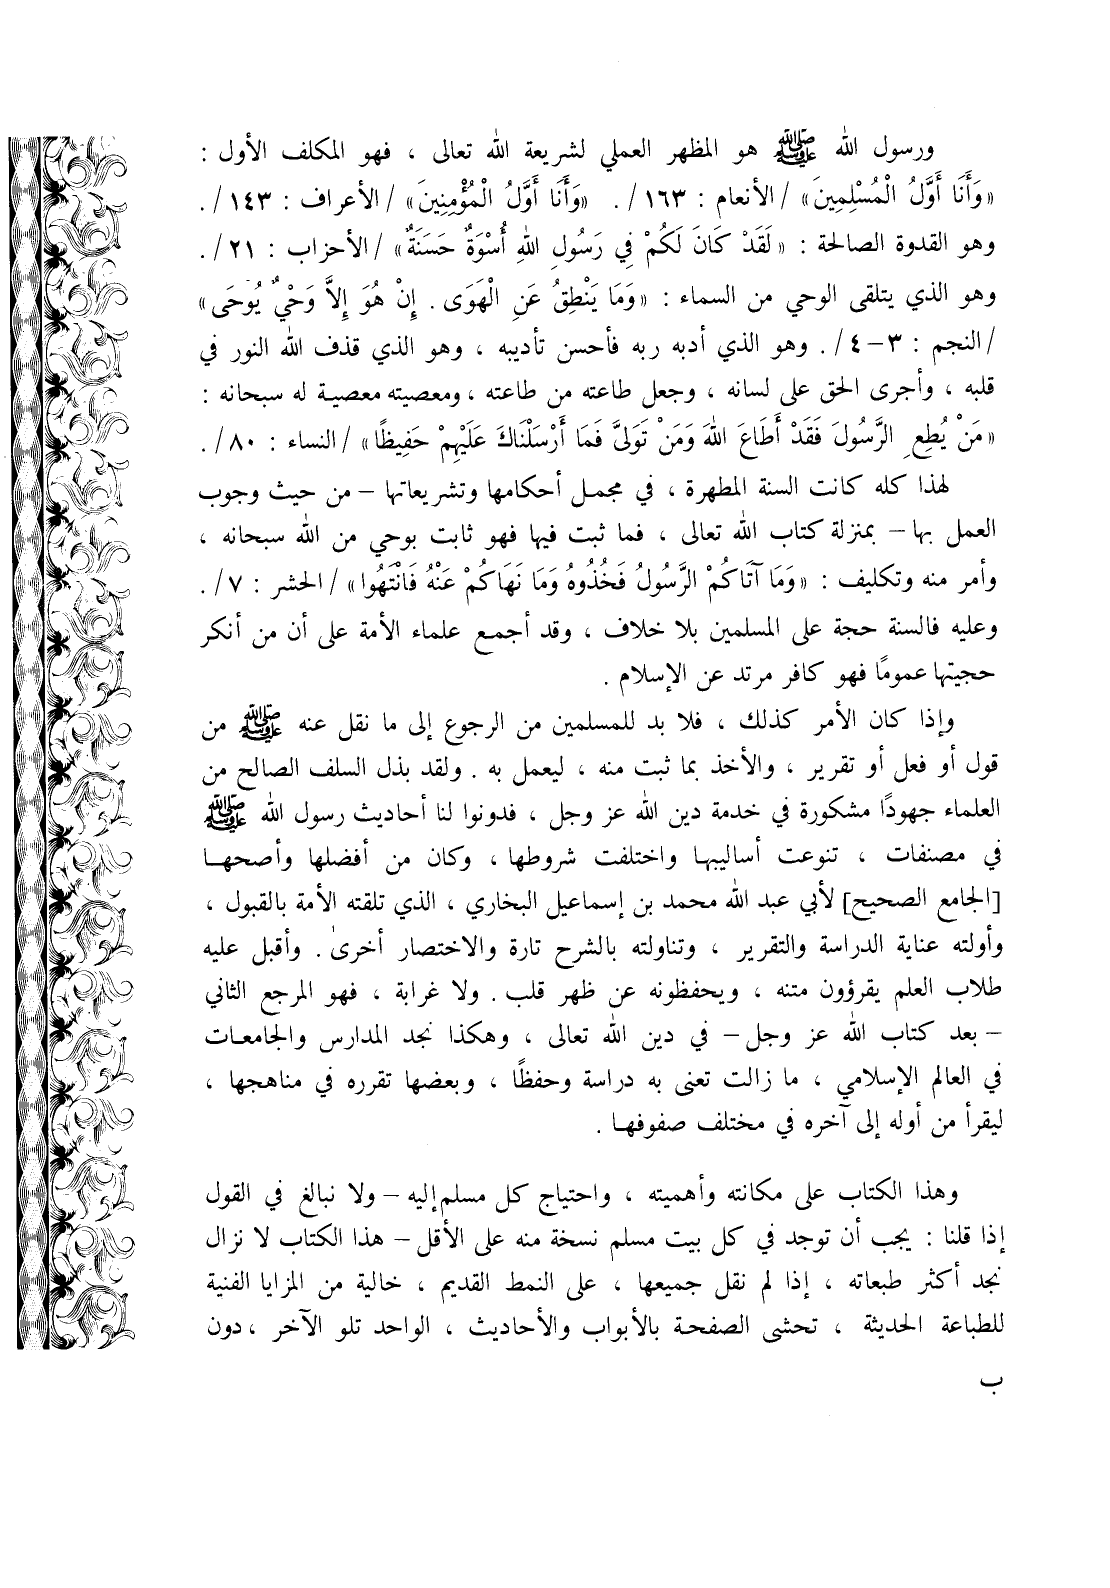 ورسول الله ﷺ هو المظهر العملي لشريعة الله تعالى ، فهو المكلف الأول :
«وَأَنَا أَوَّلُ الْمُسْلِمِينَ» /الأنعام : ١٦٣/. «وَأَنَا أَوَّلُ الْمُؤْمِنِينَ» /الأعراف : ١٤٣/.
وهو القدوة الصالحة : «لَقَدْ كَانَ لَكُمْ فِي رَسُولِ اللهِ أُسْوَةٌ حَسَنَةٌ» /الأحزاب : ٢١/.
وهو الذي يتلقى الوحي من السماء : «وَمَا يَنْطِقُ عَنِ الْهَوَى . إِنْ هُوَ إِلاَّ وَحْيٌ يُوحَى»
/النجم : ٣-٤/. وهو الذي أدبه ربه فأحسن تأديبه ، وهو الذي قذف الله النور في
قلبه ، وأجرى الحق على لسانه ، وجعل طاعته من طاعته ، ومعصيته معصية له سبحانه :
«مَنْ يُطِعِ الرَّسُولَ فَقَدْ أَطَاعَ اللهَ وَمَنْ تَوَلَّى فَمَا أَرْسَلْنَاكَ عَلَيْهِمْ حَفِيظًا» /النساء : ٨٠/.
لهذا كله كانت السنة المطهرة ، في مجمل أحكامها وتشريعاتها – من حيث وجوب
العمل بها – بمنزلة كتاب الله تعالى ، فما ثبت فيها فهو ثابت بوحي من الله سبحانه ،
وأمر منه وتكليف : «وَمَا آتَاكُمُ الرَّسُولُ فَخُذُوهُ وَمَا نَهَاكُمْ عَنْهُ فَانْتَهُوا» /الحشر : ٧/.
وعليه فالسنة حجة على المسلمين بلا خلاف ، وقد أجمع علماء الأمة على أن من أنكر
حجيتها عمومًا فهو كافر مرتد عن الإسلام .
وإذا كان الأمر كذلك ، فلا بد للمسلمين من الرجوع إلى ما نقل عنه ﷺ من
قول أو فعل أو تقرير ، والأخذ بما ثبت منه ، ليعمل به . ولقد بذل السلف الصالح من
العلماء جهودًا مشكورة في خدمة دين الله عز وجل ، فدونوا لنا أحاديث رسول الله ﷺ
في مصنفات ، تنوعت أساليبها واختلفت شروطها ، وكان من أفضلها وأصحها
[الجامع الصحيح] لأبي عبد الله محمد بن إسماعيل البخاري ، الذي تلقته الأمة بالقبول ،
وأولته عناية الدراسة والتقرير ، وتناولته بالشرح تارة والاختصار أخرى . وأقبل عليه
طلاب العلم يقرؤون متنه ، ويحفظونه عن ظهر قلب . ولا غرابة ، فهو المرجع الثاني
– بعد كتاب الله عز وجل – في دين الله تعالى ، وهكذا نجد المدارس والجامعات
في العالم الإسلامي ، ما زالت تعنى به دراسة وحفظًا ، وبعضها تقرره في مناهجها ،
ليقرأ من أوله إلى آخره في مختلف صفوفها .
وهذا الكتاب على مكانته وأهميته ، واحتياج كل مسلم إليه – ولا نبالغ في القول
إذا قلنا : يجب أن توجد في كل بيت مسلم نسخة منه على الأقل – هذا الكتاب لا نزال
نجد أكثر طبعاته ، إذا لم نقل جميعها ، على النمط القديم ، خالية من المزايا الفنية
للطباعة الحديثة ، تحشى الصفحة بالأبواب والأحاديث ، الواحد تلو الآخر ، دون
ب